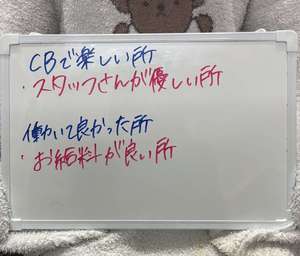 CBで楽しい所
・スタッフさんが優しい所
働いて良かった所
・お給料が良い所